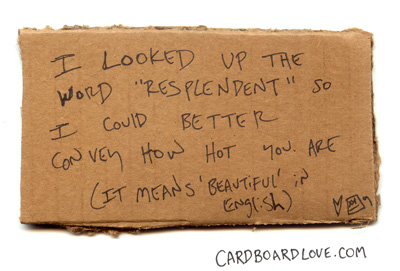 I LOOKED UP THE
WORD "RESPLENDENT" SO
I COULD BETTER
CONVEY HOW HOT YOU ARE
(IT MEANS 'BEAUTIFUL' in
ENGLISH)
CARDBOARDLOVE.COM